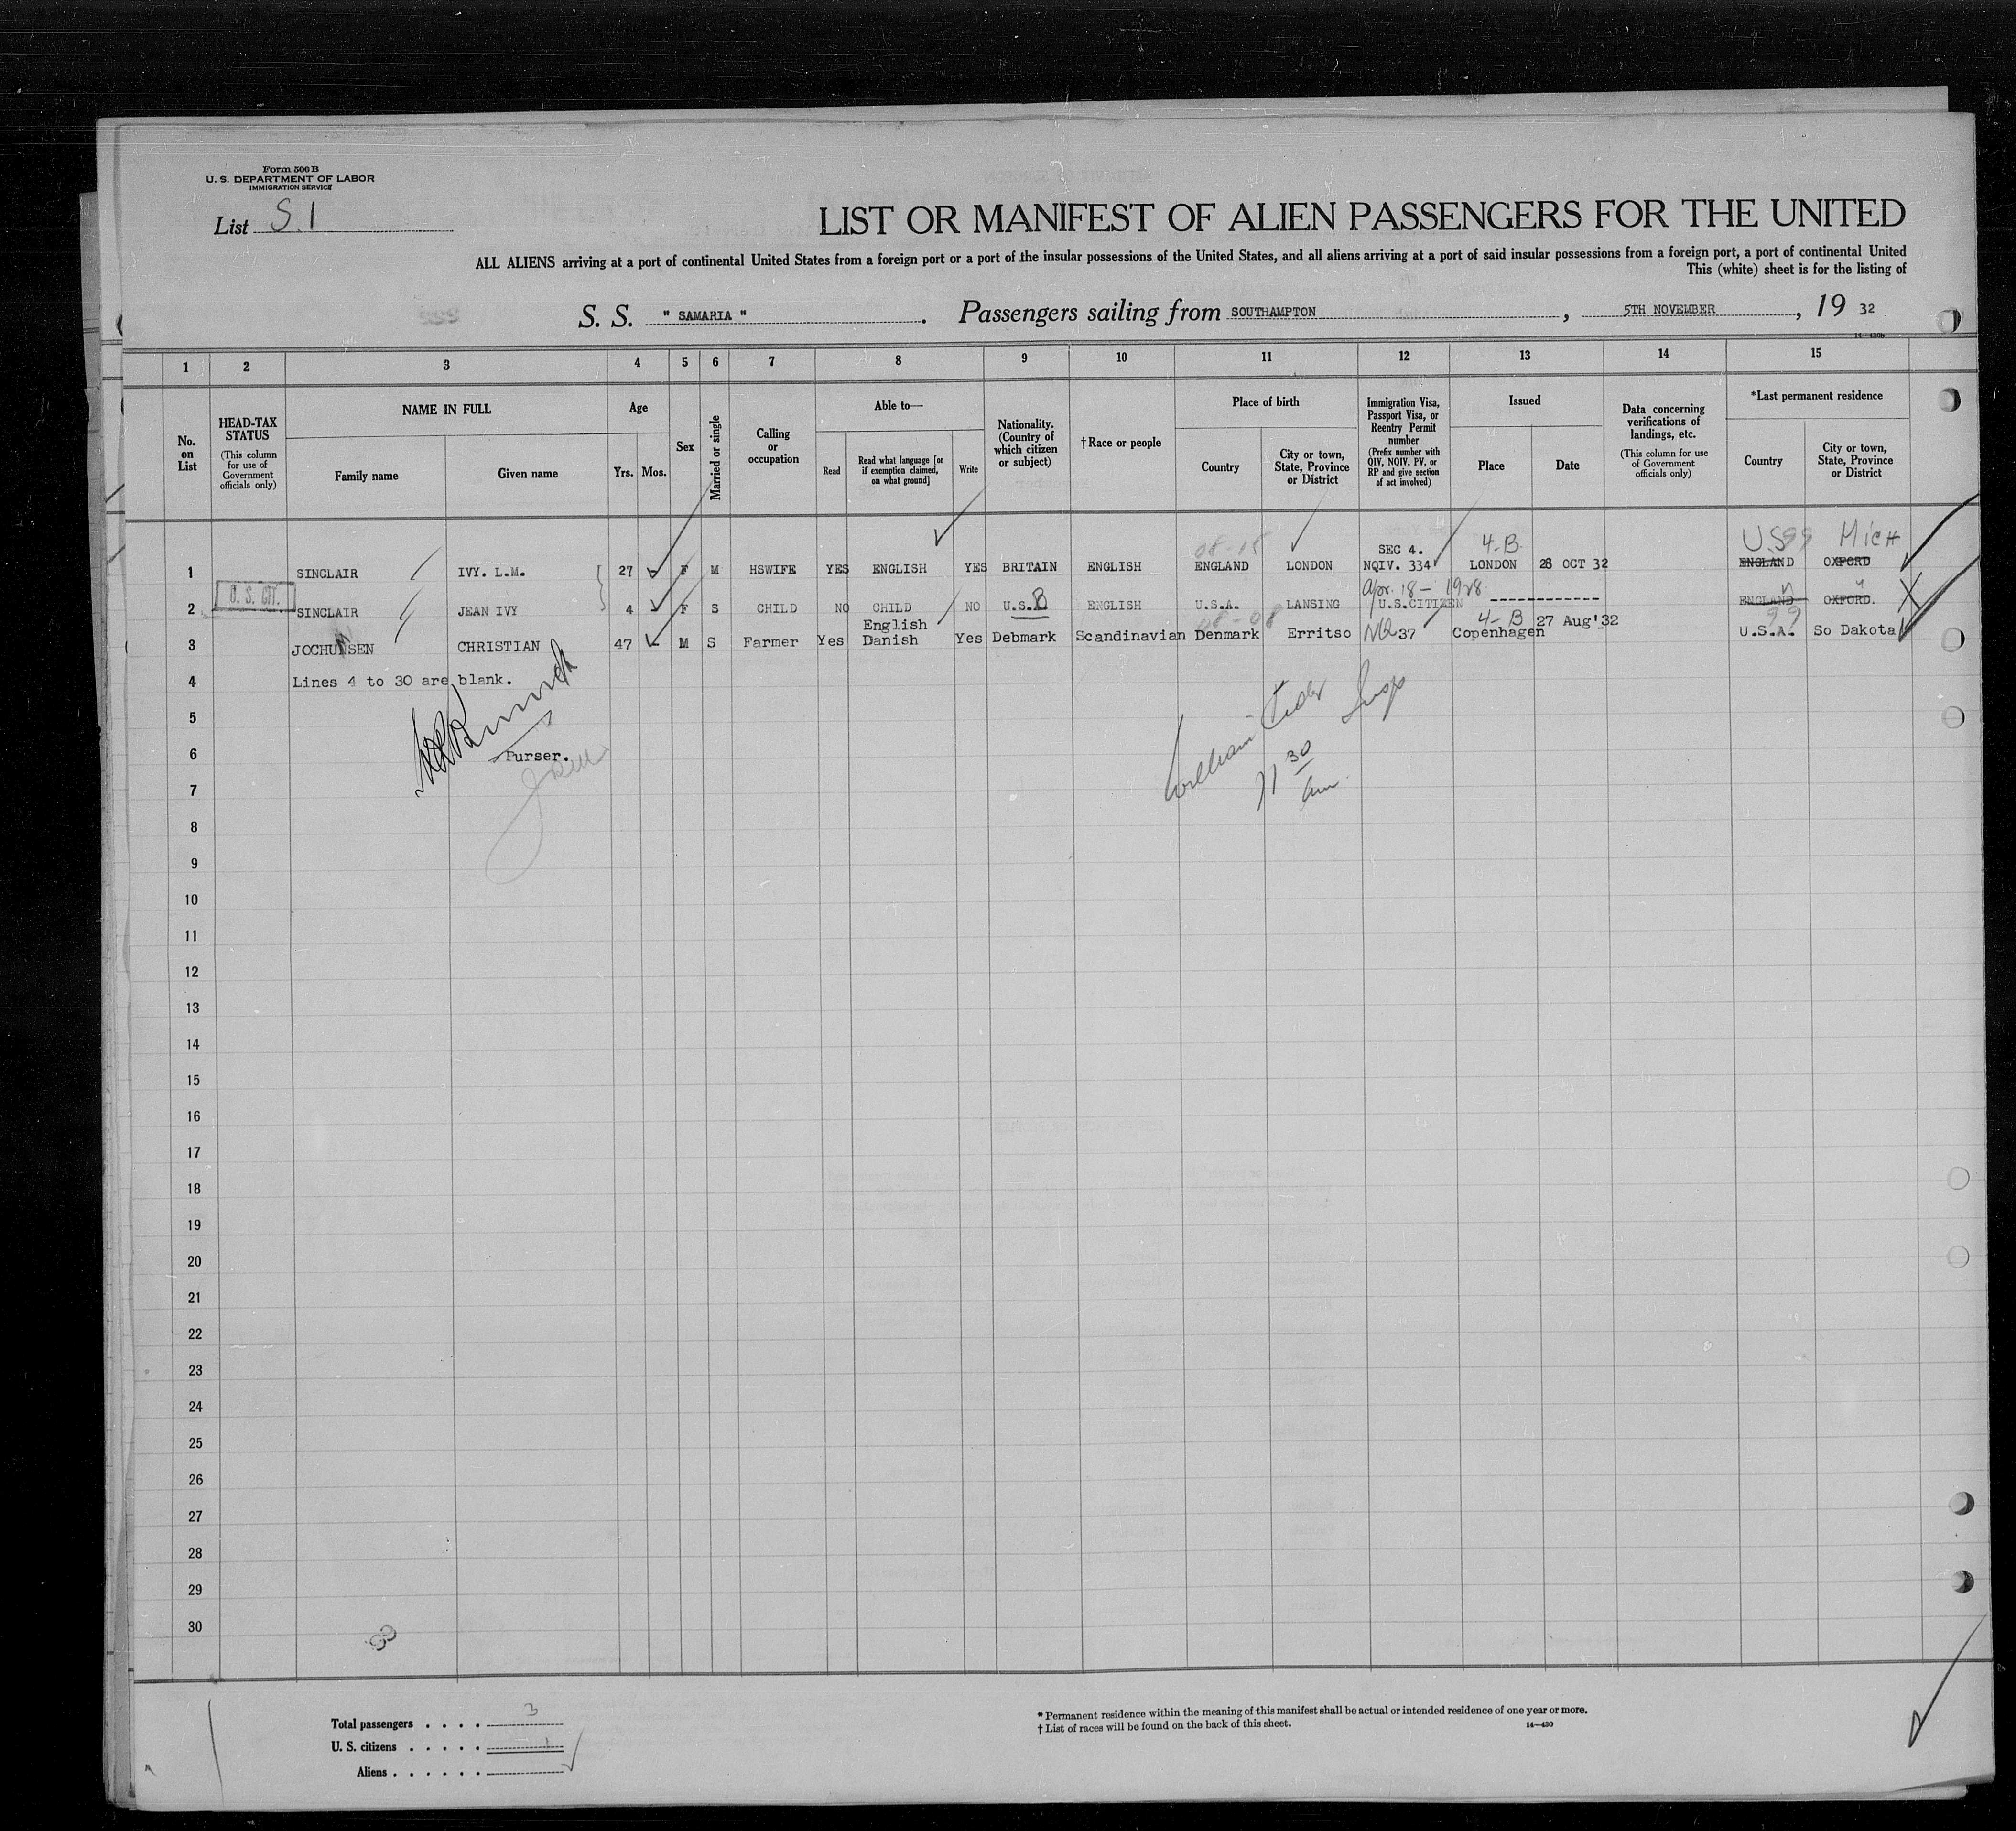 Form 500 B
U. S. DEPARTMENT OF LABOR
IMMIGRATION SERVICE
List S.1
LIST OR MANIFEST OF ALIEN PASSENGERS FOR THE UNITED
ALL ALIENS arriving at a port of continental United States from a foreign port or a port of the insular possessions of the United States, and all aliens arriving at a port of said insular possessions from a foreign port, a port of continental United
This (white) sheet is for the listing of
S. S. " SAMARIA " . Passengers sailing from SOUTHAMPTON , 5TH NOVEMBER , 19 32
14-430b
1 2 3 4 5 6 7 8 9 10 11 12 13 14 15
No. on List
HEAD-TAX STATUS (This column for use of Government officials only)
NAME IN FULL
Family name
Given name
Age
Yrs. Mos.
Sex
Married or single
Calling or occupation
Able to—
Read
Read what language [or if exemption claimed, on what ground]
Write
Nationality. (Country of which citizen or subject)
†Race or people
Place of birth
Country
City or town, State, Province or District
Immigration Visa, Passport Visa, or Reentry Permit number (Prefix number with QIV, NQIV, PV, or RP and give section of act involved)
Issued
Place
Date
Data concerning verifications of landings, etc. (This column for use of Government officials only)
*Last permanent residence
Country
City or town, State, Province or District
08-15 SEC 4. 4-B U.S 99 Mich
1 SINCLAIR IVY. L.M. 27 F M HSWIFE YES ENGLISH YES BRITAIN ENGLISH ENGLAND LONDON NQIV. 334 LONDON 28 OCT 32 ENGLAND OXFORD
U. S. CIT. Apr. 18 - 1928
2 SINCLAIR JEAN IVY 4 F S CHILD NO CHILD NO U.S.B ENGLISH U.S.A. LANSING U.S.CITIZEN ------------ ENGLAND OXFORD.
English 08-08 4-B 27 Aug'32 99
3 JOCHUMSEN CHRISTIAN 47 M S Farmer Yes Danish Yes Debmark Scandinavian Denmark Erritso NQ 37 Copenhagen U.S.A. So Dakota
4 Lines 4 to 30 are blank.
5
6 Purser.
William Insp
7
11 30 am
8
9
10
11
12
13
14
15
16
17
18
19
20
21
22
23
24
25
26
27
28
29
30
Total passengers . . . . 3
U. S. citizens . . . . . 1
Aliens . . . . . .
* Permanent residence within the meaning of this manifest shall be actual or intended residence of one year or more.
† List of races will be found on the back of this sheet.
14—430